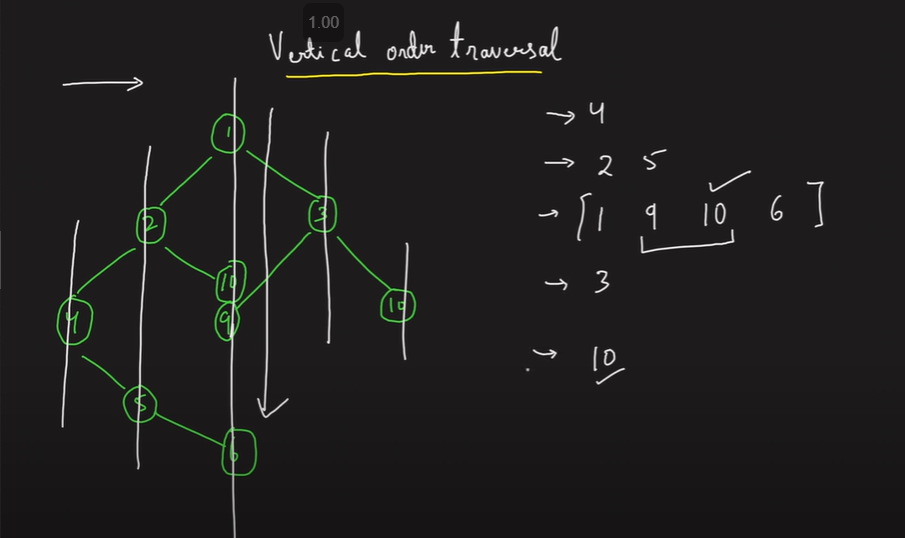 1.00
Vertical order traversal
1
2
3
10
9
4
10
5
6
→ 4
→ 2 5
→ [1 9 10 6]
→ 3
→ 10